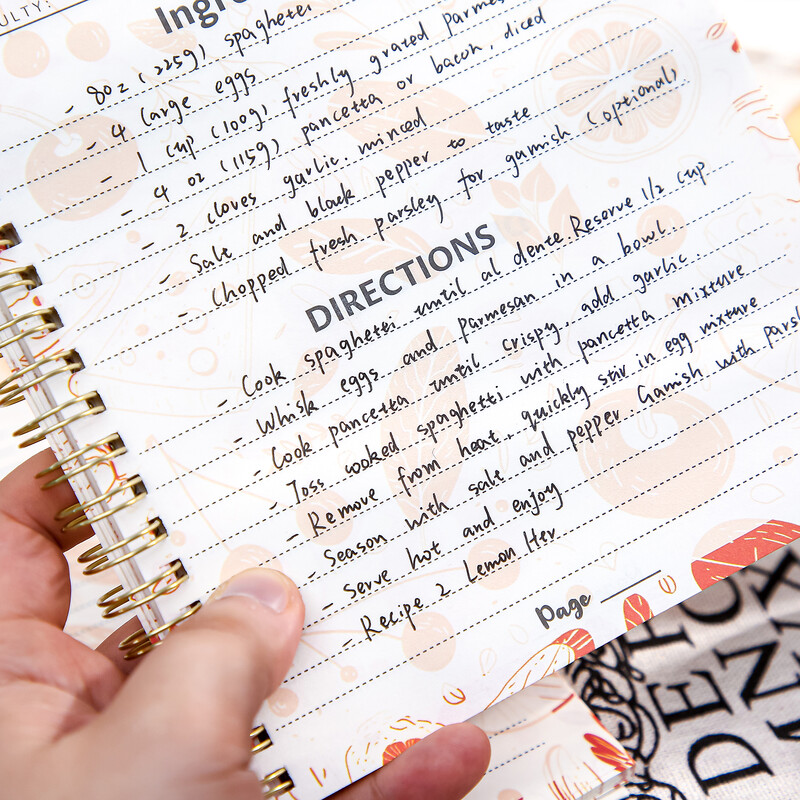 ULTY:
Ingre
- 8oz (225g) spaghetti
- 4 large eggs
- 1 cup (100g) freshly grated Parmes
- 4 oz (115g) pancetta or bacon, diced
- 2 cloves garlic, minced
- Salt and black pepper to taste
- Chopped fresh parsley for garnish (optional)
DIRECTIONS
- Cook spaghetti until al dente. Reserve 1/2 cup
- Whisk eggs and parmesan in a bowl.
- Cook pancetta until crispy, add garlic
- Toss cooked spaghetti with pancetta mixture
- Remove from heat, quickly stir in egg mixture
- Season with salt and pepper. Garnish with parsl
- Serve hot and enjoy
- Recipe 2 Lemon Her
Page